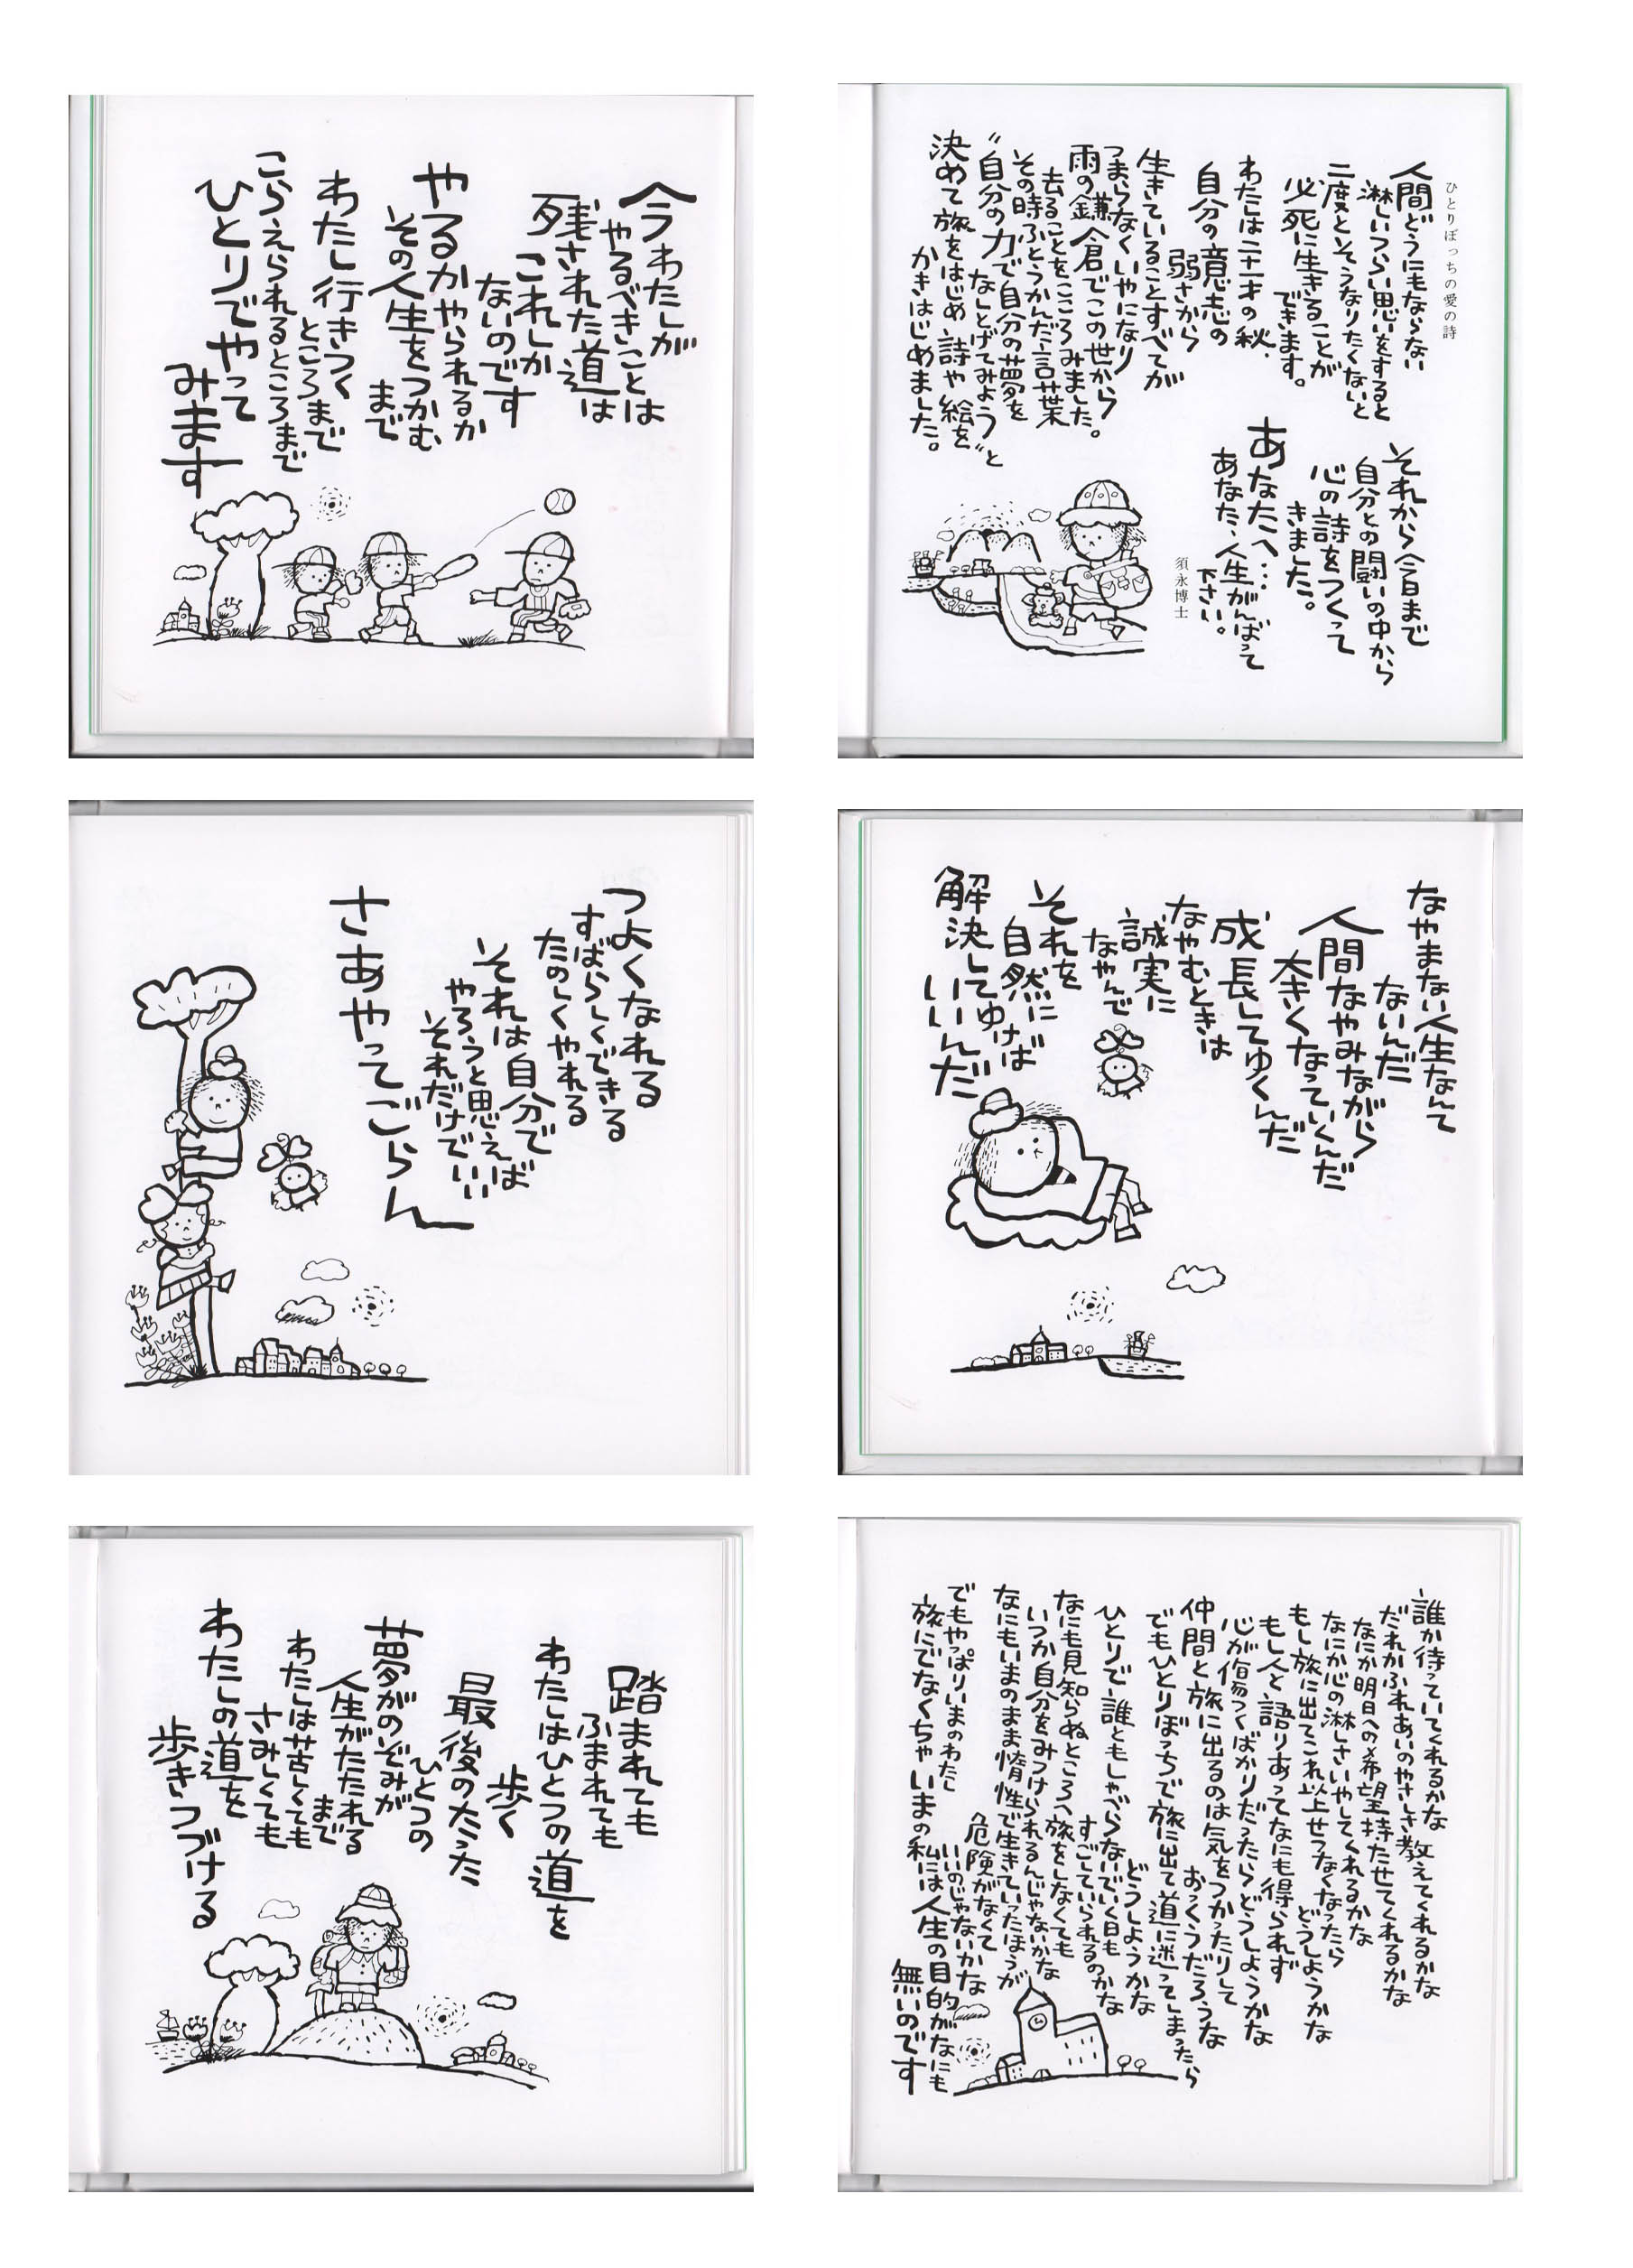 今わたしが
やるべきことは
残された道は
これしか
ないのです
やるかやられるか
その人生をつかむ
まで
わたし行きつく
ところまで
こらえられるところまで
ひとりでやって
みます
ひとりぼっちの愛の詩
人間どうにもならない
淋しいつらい思いをすると
二度とそうなりたくないと
必死に生きることが
できます。
わたしは二十一才の秋、
自分の意志の
弱さから
生きていることすべてが
つまらなくいやになり
雨の鎌倉でこの世から
去ることをこころみました。
その時ふとうかんだ言葉
〝自分の力で自分の夢を
なしとげてみよう〟と
決めて旅をはじめ詩や絵を
かきはじめました。
それから今日まで
自分との闘いの中から
心の詩をつくって
きました。
あなたへ…
あなた、人生がんばって
下さい。
須永博士
つよくなれる
すばらしくできる
たのしくやれる
それは自分で
やろうと思えば
それだけでいい
さあやってごらん
なやまない人生なんて
ないんだ
人間なやみながら
大きくなっていくんだ
成長してゆくんだ
なやむときは
誠実に
なやんで
それを
自然に
解決してゆけば
いいんだ
踏まれても
ふまれても
わたしはひとつの道を
歩く
最後のたった
ひとつの
夢がのぞみが
人生がたたれる
まで
わたしは苦しくても
さみしくても
わたしの道を
歩きつづける
誰か待っていてくれるかな
だれかふれあいのやさしさ教えてくれるかな
なにか明日への希望持たせてくれるかな
なにか心の淋しさいやしてくれるかな
もし旅に出てこれ以上せつなくなったら
どうしようかな
もし人と語りあってなにも得られず
心が傷つくばかりだったらどうしようかな
仲間と旅に出るのは気をつかったりして
おっくうだろうな
でもひとりぼっちで旅に出て道に迷ってしまったら
どうしようかな
ひとりで誰ともしゃべらないでいく日も
すごしていられるのかな
なにも見知らぬところへ旅をしなくても
いつか自分をみつけられるんじゃないかな
なにもいまのまま惰性で生きていったほうが
危険がなくて
いいのじゃないかな
でもやっぱりいまのわたし
旅にでなくちゃいまの私には人生の目的がなにも
無いのです